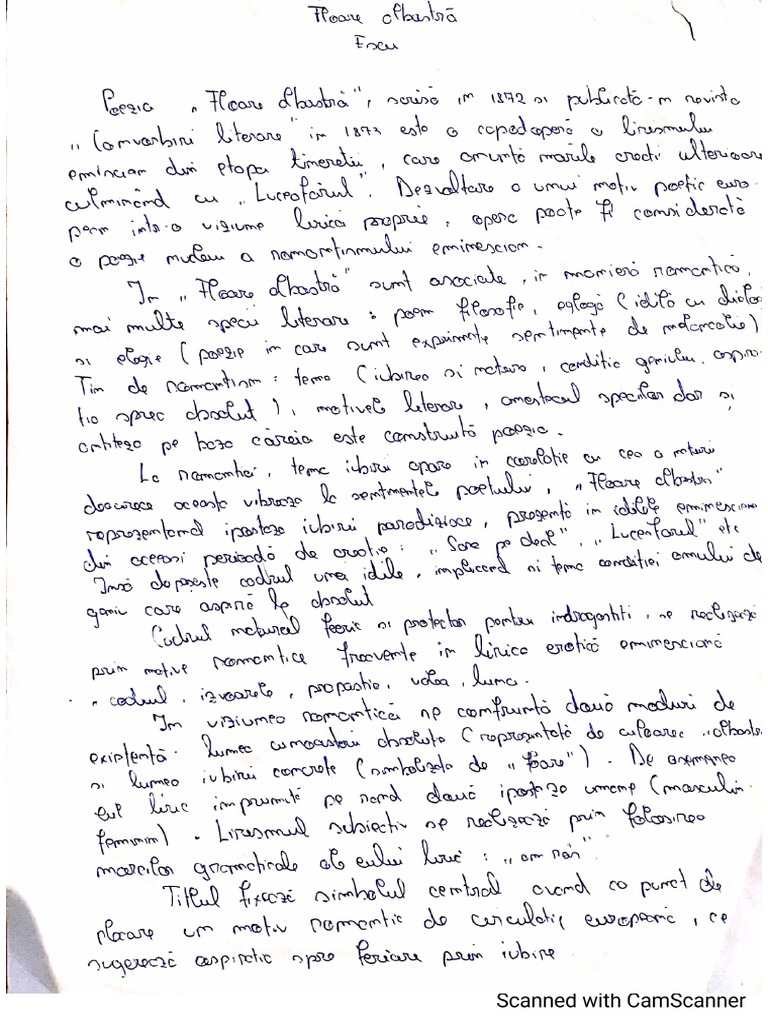 Floare albastră
Eseu
Poezia „Floare albastră", scrisă în 1872 si publicată-n revista
„Convorbiri literare" în 1873 este o capodoperă a lirismului
eminescian din etapa tinereții, care anunță marile creații ulterioare
culminând cu „Luceafărul". Dezvoltare a unui motiv poetic euro-
pean intr-o viziune lirică proprie, opera poate fi considerată
o poezie nucleu a romantismului eminescian.
In „Floare albastră" sunt asociate, in manieră romantică,
mai multe specii literare: poem filosofic, eglogă (idilă cu dialog
si elegie (poezie in care sunt exprimate sentimente de melancolie)
Tin de romantism: tema (iubirea si natura, conditia geniului, aspira-
tia spre absolut), motivele literare, amestecul speciilor dar si
antiteza pe baza căreia este construită poezia.
La romantici, tema iubirii apare in corelatie cu cea a naturii
deoarece aceasta vibreaza la sentimentele poetului, „Floare albastra"
reprezentand ipostaza iubirii paradiziace, prezentă in idilele eminesciene
din aceeasi perioadă de creatie: „Sara pe deal", „Luceafarul" etc
Insă depaseste cadrul unei idile, implicand si tema conditiei omului de
geniu care aspiră la absolut
Cadrul natural feeric si protector pentru indragostiti, se realizează
prin motive romantice frecvente in lirica erotică eminesciană
codrul, izvoarele, prapastia, valea, luna.
In viziunea romantică se confruntă două moduri de
existentă. lumea cunoasterii absolute (reprezentată de culoarea „albastra
si lumea iubirii concrete (simbolizata de „floare"). De asemenea
eul liric imprumită pe rand două ipostaze umane (masculin-
feminin). Lirismul subiectiv se realizează prin folosirea
marcilor gramaticale ale eului liric: „am râs"
Titlul fixează simbolul central avand ca punct de
plecare un motiv romantic de circulatie europeană, ce
sugerează aspiratia spre fericire prin iubire
Scanned with CamScanner